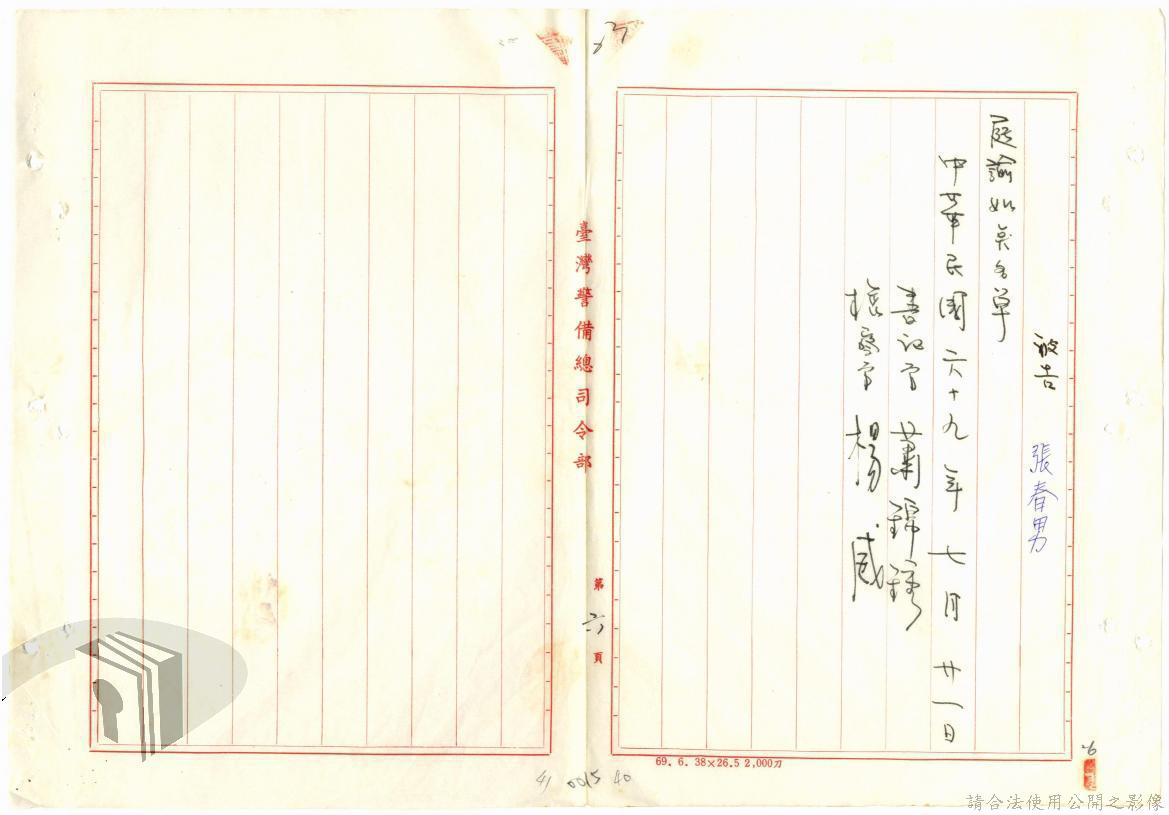 被告 張春男
庭諭如點名單
中華民國六十九年七月廿一日
書記官 蕭錦鍾
檢察官 楊威
臺灣警備總司令部
第六頁
69. 6. 38×26.5 2,000刀
41 0015 40
請合法使用公開之影像